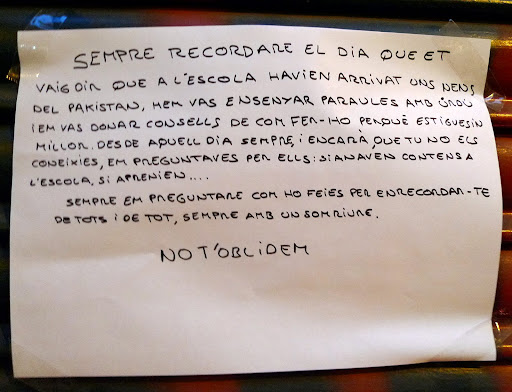 SEMPRE RECORDARE EL DIA QUE ET
VAIG DIR QUE A L'ESCOLA HAVIEN ARRIVAT UNS NENS
DEL PAKISTAN, HEM VAS ENSENYAR PARAULES AMB ÚRDU
I EM VAS DONAR CONSELLS DE COM FER-HO PERQUÈ ESTIGUESIN
MILLOR. DESDE AQUELL DIA SEMPRE, I ENCARÀ QUE TU NO ELS
CONEIXIES, EM PREGUNTAVES PER ELLS: SI ANAVEN CONTENS A
L'ESCOLA, SI APRENIEN....
SEMPRE EM PREGUNTARE COM HO FEIES PER ENRECORDAR-TE
DE TOTS I DE TOT, SEMPRE AMB UN SOMRIURE.
NO T'OBLIDEM